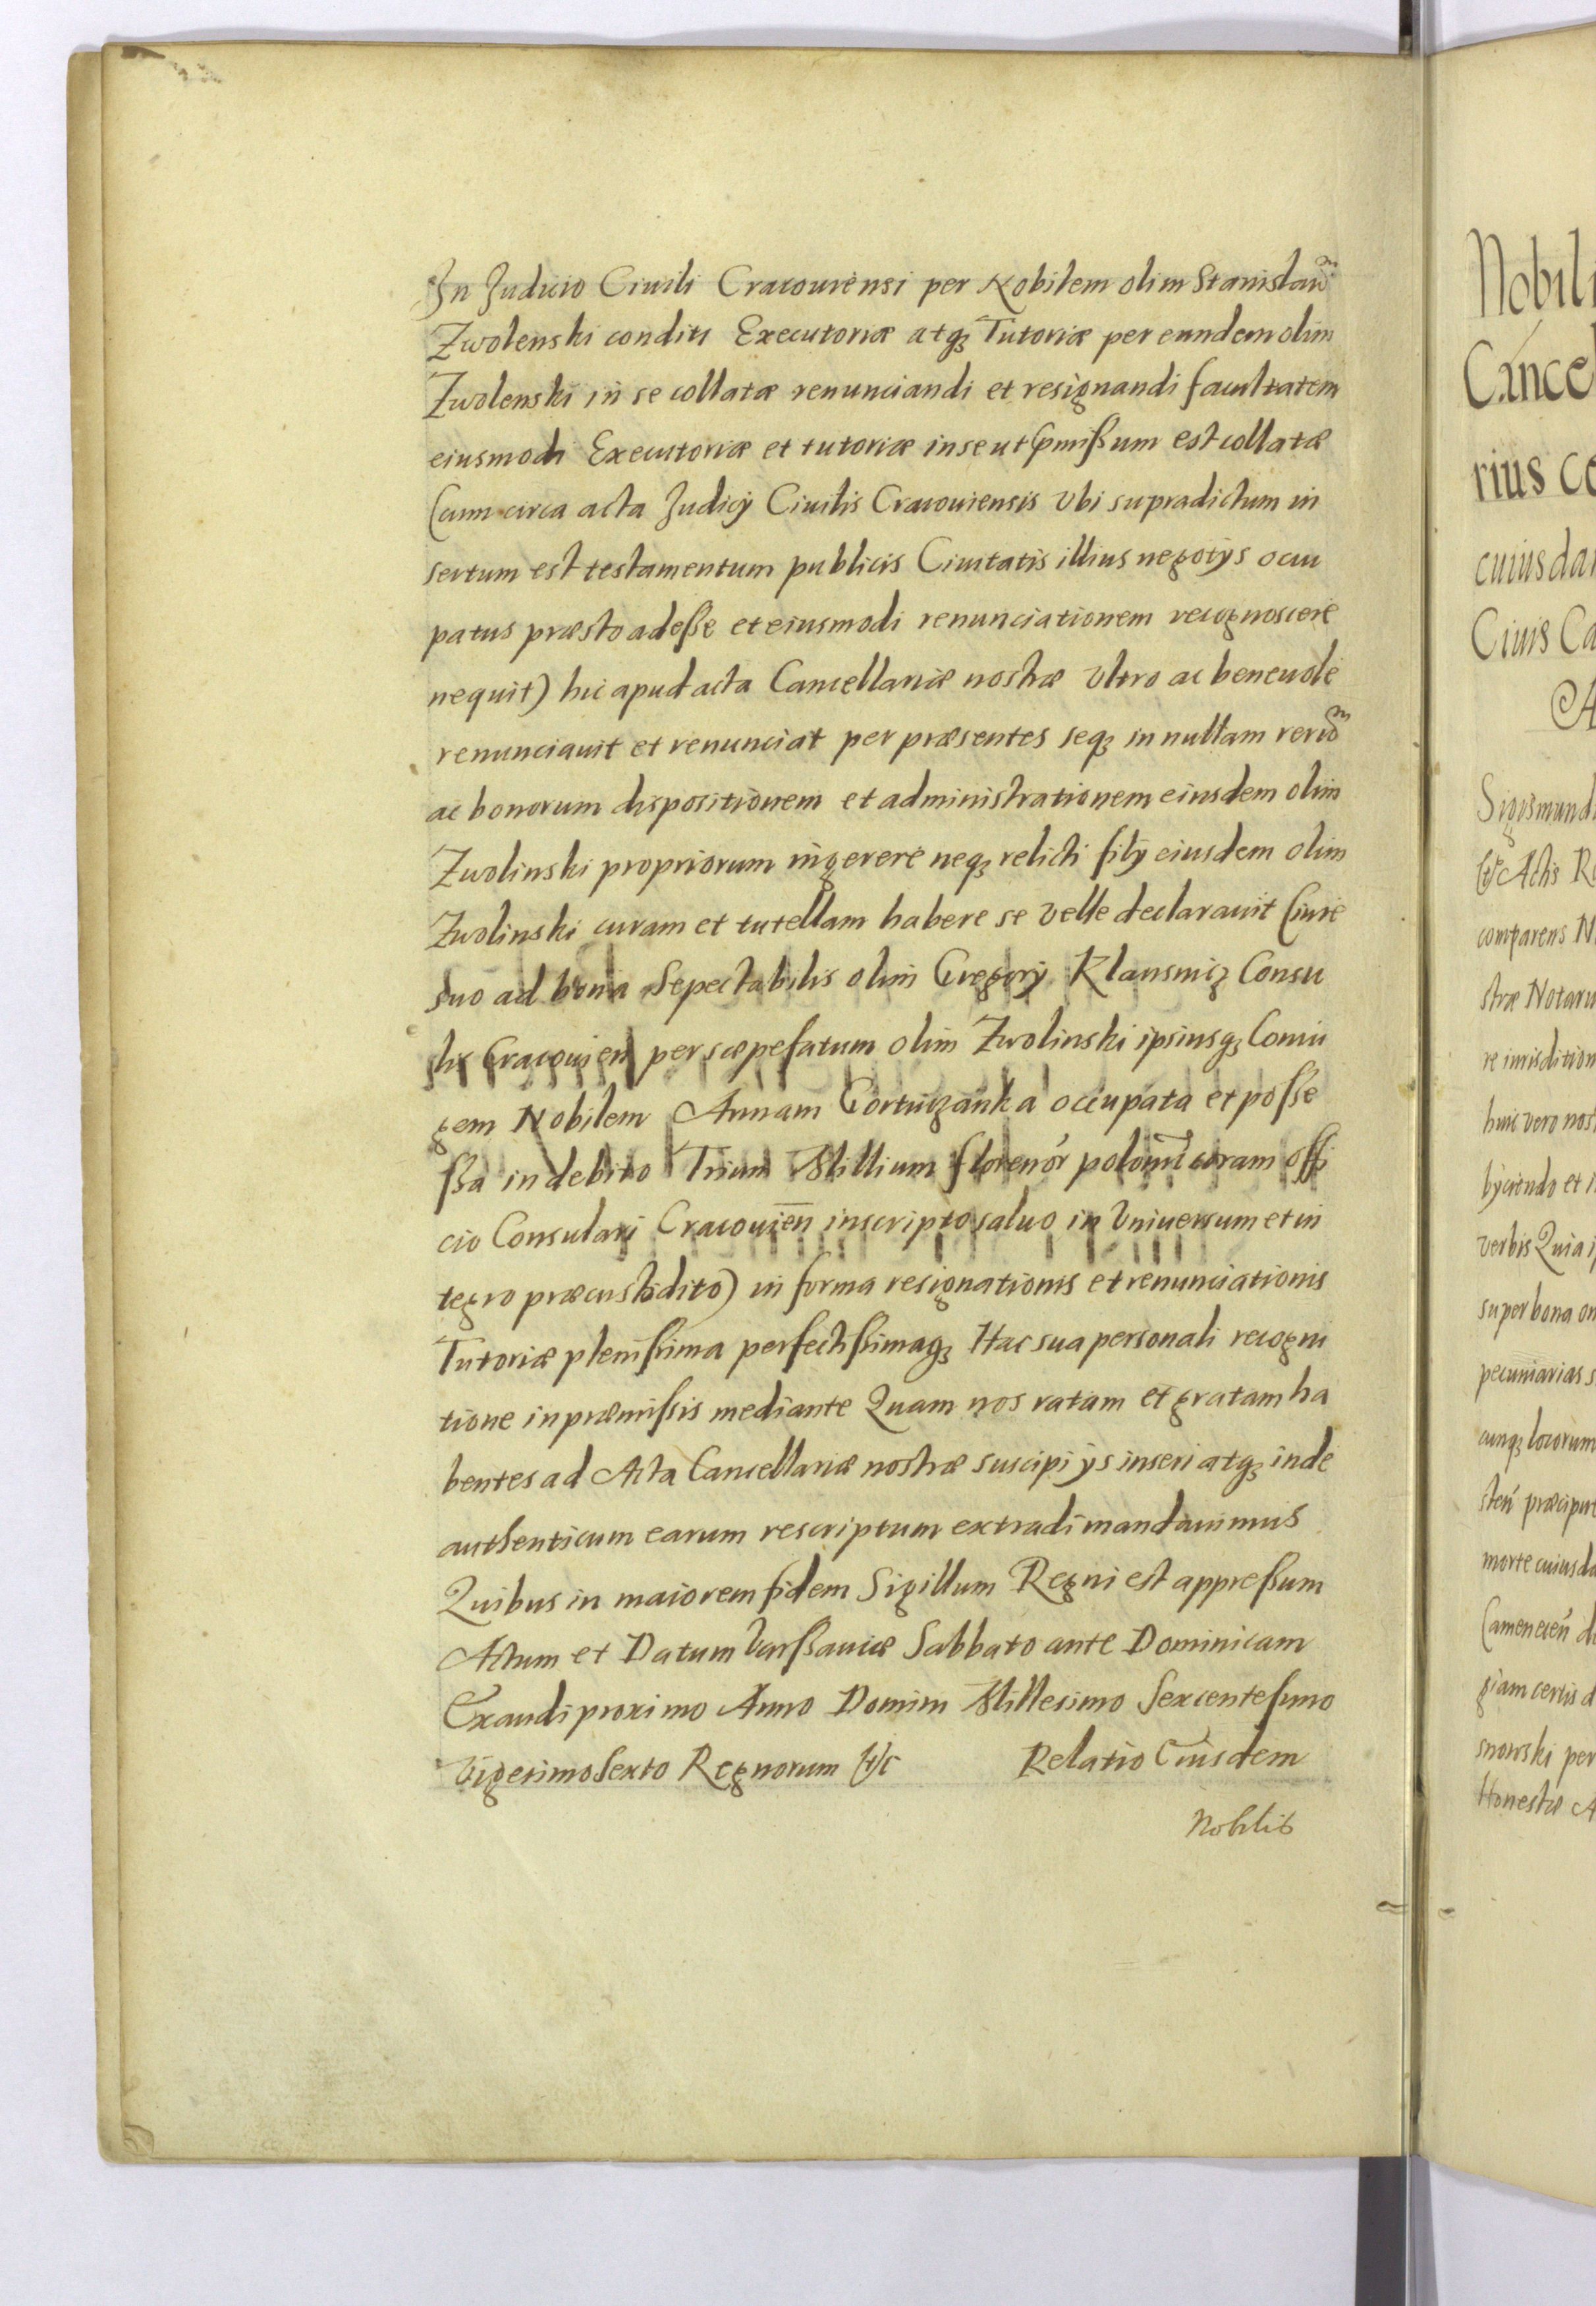 In Judicio Ciuili Cracouiensi per Nobilem olim Stanislaũ
Zwolenski conditi Executoriæ atq₃ Tutoriæ per eundem olim
Zwolenski in se collatæ renunciandi et resignandi facultatem
eiusmodi Executoriæ et tutoriæ in se ut p̃mißum est collatæ
(cum circa acta Judicÿ Ciuilis Cracouiensis Vbi supradictum in
sertum est testamentum publicis Ciuitatis illius negotÿs occu
patus præsto adeße et eiusmodi renunciationem recognoscere
nequit) hic apud acta Cancellariæ nostræ Vltro ac beneuole
renunciauit et renunciat per præsentes seq₃ in nullam rerũ
ac bonorum dispositionem et administrationem eiusdem olim
Zwolinski propriorum ingerere neq₃ relicti filÿ eiusdem olim
Zwolinski curam et tutellam habere se velle declarauit (iure
suo ad bona Sepectabilis olim Gregorÿ Klausnicz Consu
lis Cracouien per sæpefatum olim Zwolinski ipsiusq₃ Coniu
gem Nobilem Annam Gortuiczanka occupata et poße
ßa in debito Trium Millium florenor polonũ coram offi
cio Consulari Cracouien̄ inscripto saluo in Vniuersum et in
tegro præcustodito) in forma resignationis et renunciationis
Tutoriæ plenißima perfectißimaq₃ Hac sua personali recogni
tione in præmißis mediante Quam nos ratam et gratam ha
bentes ad Acta Cancellariæ nostræ suscipi ÿs inseri atq₃ inde
authenticum earum rescriptum extradi mandauimus
Quibus in maiorem fidem Sigillum Regni est appreßum
Actum et Datum Varßauiæ Sabbato ante Dominicam
Exaudi proximo Anno Domini Millesimo Sexcentesimo
Vigesimo Sexto Regnorum etc Relatio Eiusdem
Nobilis
Nobili
Cancel
rius co
cuiusda
Ciuis Ca
A
Sigismund
Actis R
comparens N
stræ Notari
re iurisdition
huic vero nost
bÿciendo et i
verbis Quia i
super bona om
pecuniarias s
cunq₃ locorum
præcipue
morte cuiusda
Camenecen̄ d
giam certis d
snowski per
Honestæ A